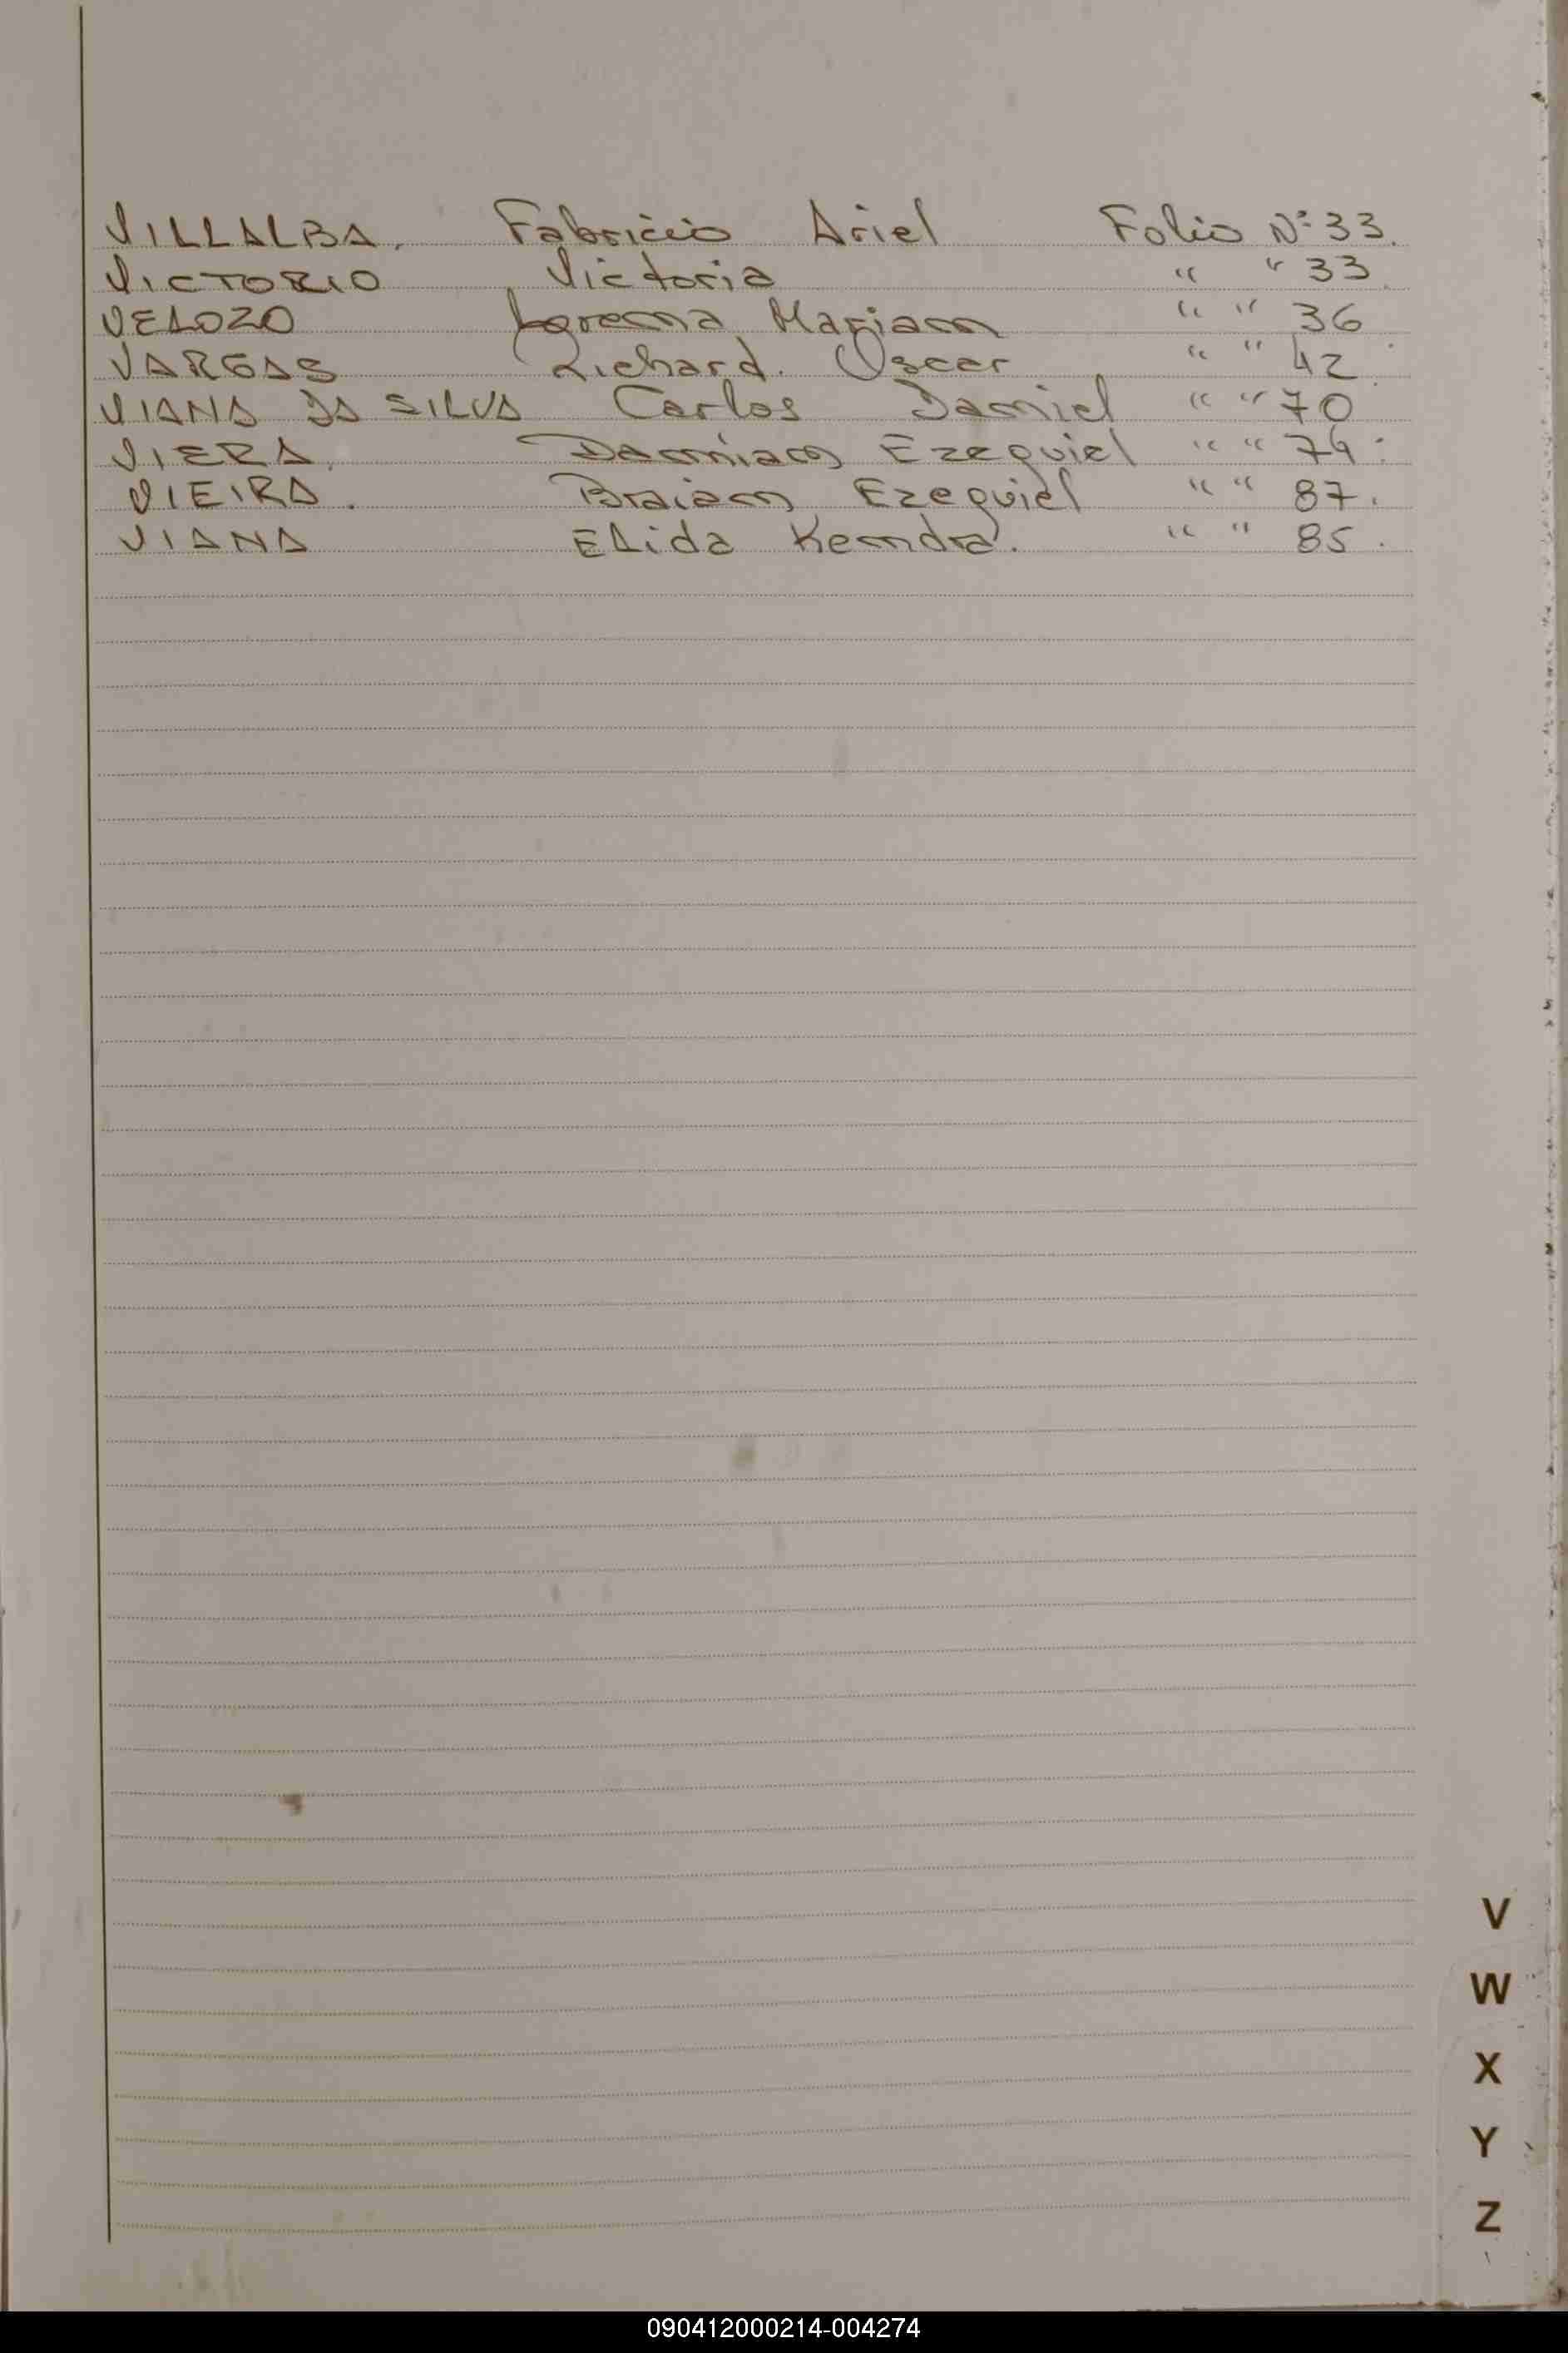 VILLALBA. Fabricio Ariel Folio Nº 33.
VICTORIO Victoria " " 33.
VELOZO Lorena Mariam " " 36
VARGAS Richard. Oscar " " 42.
VIANA DA SILVA Carlos Daniel " " 70
VIERA. Damian Ezequiel " " 79.
VIEIRA. Braian Ezequiel " " 87.
VIANA Elida Kendra. " " 85.
V
W
X
Y
Z
090412000214-004274